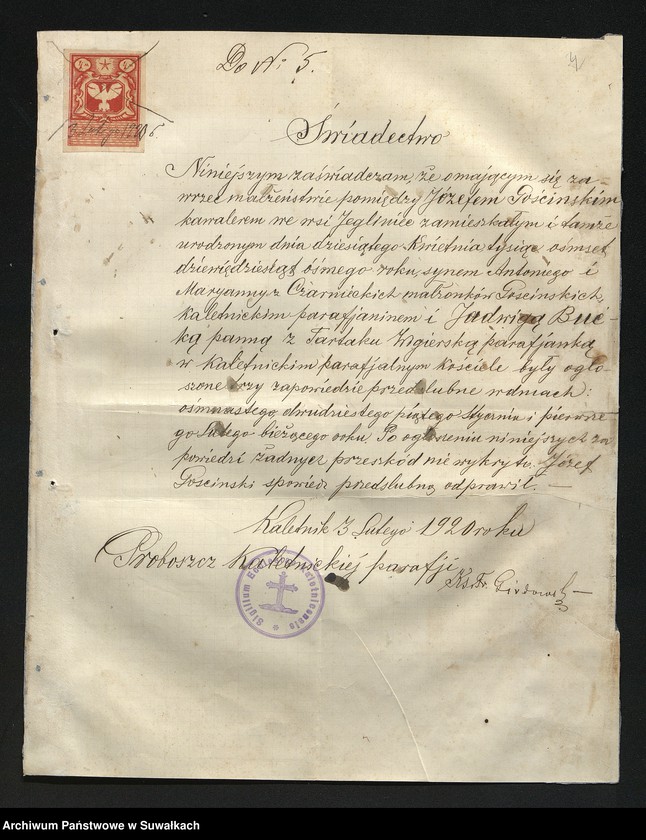 Do Nr 5.
Świadectwo
Niniejszym zaświadczam, że o mającym się za-
wrzeć małżeństwie pomiędzy Józefem Gościńskim
kawalerem we wsi Jegliniec zamieszkałym i tamże
urodzonym dnia dziesiątego Kwietnia tysiąc ośmset
dziewiędziesiąt ósmego roku, synem Antoniego i
Maryanny z Czarnieckich małżonków Gościnskich,
kaletnickim parafjaninem i Jadwigą Buć-
ką panną z Tartaku Wigierską parafjanką
w Kaletnickim parafjalnym kościele były ogło-
szone trzy zapowiedzie przedslubne w dniach:
ośmnastego, dwudziestego piątego Stycznia i pierwsze
go Lutego bieżącego roku. Po ogłoszeniu niniejszych za
powiedzi żadnych przeszkód nie wykryto. Józef
Gościnski spowiedź przedslubną odprawił. —
Kaletnik 3 Lutego 1920 roku
Proboszcz Kaletnickiej parafji
Ks. Fr.
Sigillum Ecclesiae Kaletnicensis
Archiwum Państwowe w Suwałkach